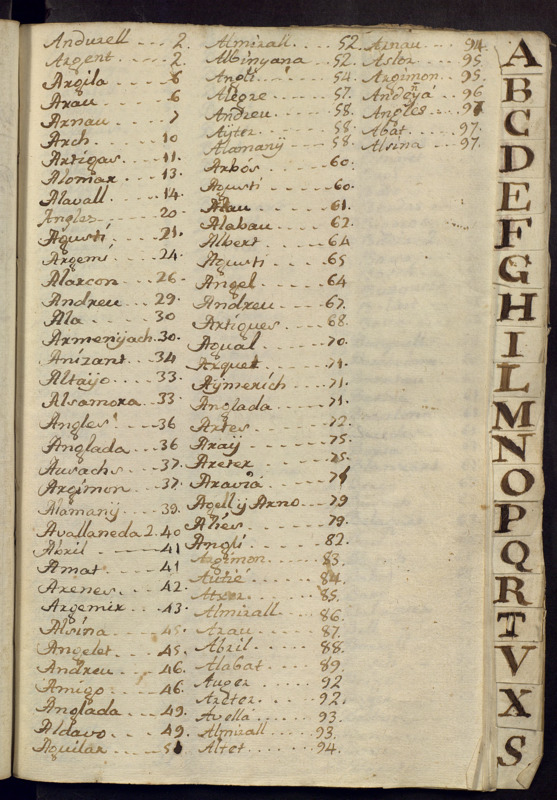 Andurell .... 2.
Argent ..... 2.
Argila .... 6
Arau ..... 6
Arnau ..... 7
Arch .... 10
Artigas ... 11.
Alomar ... 13.
Alavall .... 14.
Angles .... 20.
Agustí .... 21.
Argemi .... 24.
Alarcon ... 26.
Andreu ... 29.
Ala ..... 30
Armenÿach. 30.
Anizant ... 34
Altaijo .... 33.
Alsamora .. 33.
Angles .... 36
Anglada ... 36
Ausachs ... 37.
Argimon ... 37.
Alamanÿ ... 39.
Avallaneda 2. 40
Abril ..... 41
Amat ..... 41
Arenes .... 42.
Argemir ... 43.
Alsina .... 45.
Angelet ... 45.
Andreu .... 46.
Amigo .... 46.
Anglada ... 49.
Aldavo .... 49.
Aguilar ... 51
Almirall ... 52
Albinyana .. 52.
Angli .... 54.
Alegre .... 57.
Andreu ... 58.
Aÿter .... 58.
Alamanÿ ... 58.
Arbós .... 60.
Agusti .... 60.
Alau ..... 61.
Alabau .... 62.
Albert .... 64
Agusti .... 65
Angel .... 64
Andreu .... 67.
Artigues ... 68.
Agual .... 70.
Arquer .... 71.
Aÿmerich ... 71.
Anglada ... 71.
Artes .... 72.
Araÿ .... 75.
Areter .... 75.
Aravia .... 76
Agell ÿ Arno .. 79
Aliés .... 79.
Angli .... 82.
Argimon .... 83.
Autié .... 84.
Atxer .... 85.
Almirall ... 86.
Arau .... 87.
Abril .... 88.
Alabat .... 89.
Auger .... 92
Arcter .... 92.
Avellá .... 93.
Almirall ... 93.
Altet .... 94.
Arnau ... 94.
Astor .... 95.
Argimon .. 95.
Andoñyá .. 96
Angles ... 97
Abat .... 97.
Alsina ... 97.
A
B
C
D
E
F
G
H
I
L
M
N
O
P
Q
R
T
V
X
S